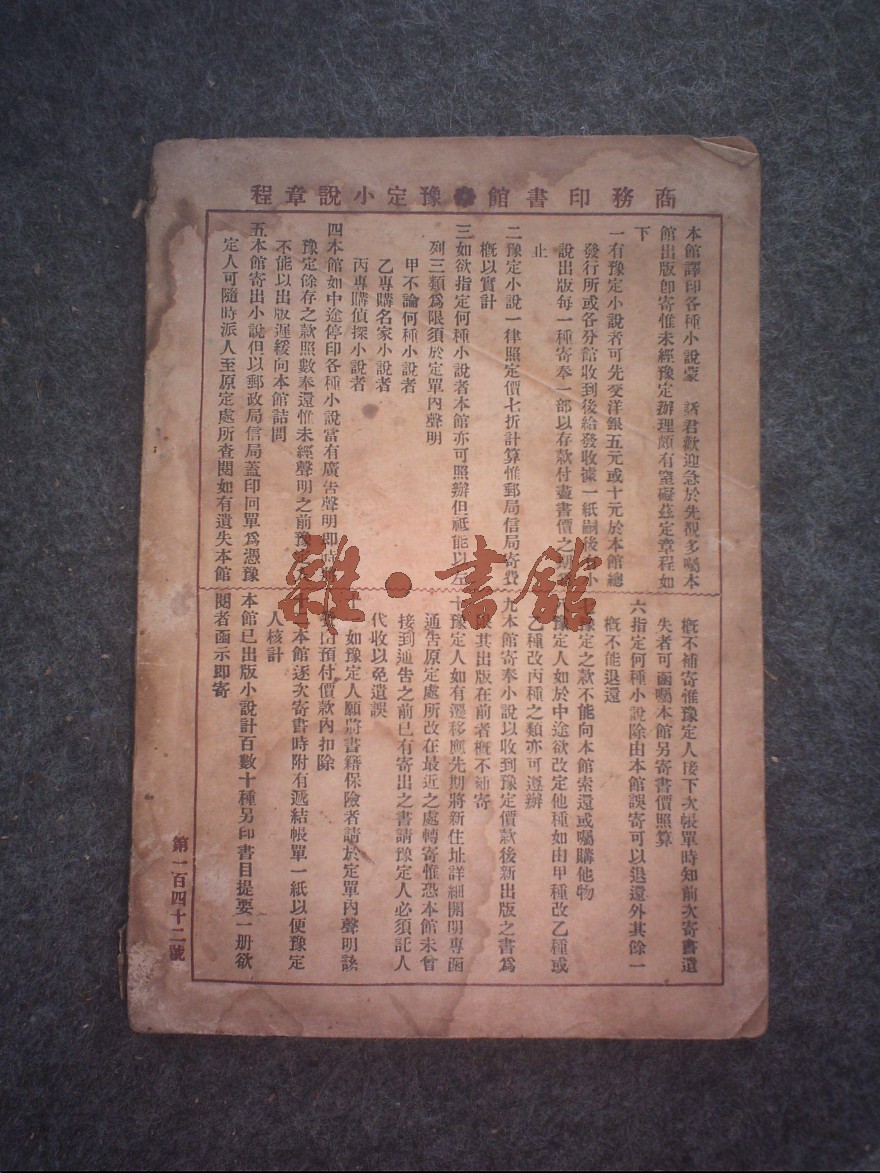 商務印書館豫定小說章程
本館譯印各種小說蒙　諸君歡迎急於先覩多囑本
館出版卽寄惟未經豫定辦理頗有窒礙茲定章程如
下
一有豫定小說者可先交洋銀五元或十元於本館總
發行所或各分館收到後給發收據一紙嗣後出小
說出版每一種寄奉一部以存款付盡書價之期爲
止
二豫定小說一律照定價七折計算惟郵局信局寄費
槪以實計
三如欲指定何種小說者本館亦可照辦但祇能以左
列三類爲限須於定單內聲明
甲不論何種小說者
乙專購名家小說者
丙專購偵探小說者
四本館如中途停印各種小說當有廣告聲明卽時將
豫定餘存之款照數奉還惟未經聲明之前豫定人
不能以出版遲緩向本館詰問
五本館寄出小說但以郵政局信局蓋印回單爲憑豫
定人可隨時派人至原定處所查閱如有遺失本館
槪不補寄惟豫定人接下次帳單時知前次寄書遺
失者可函囑本館另寄書價照算
六指定何種小說除由本館誤寄可以退還外其餘一
槪不能退還
豫定之款不能向本館索還或囑購他物
豫定人如於中途欲改定他種如由甲種改乙種或
乙種改丙種之類亦可遵辦
九本館寄奉小說以收到豫定價款後新出版之書爲
限其出版在前者槪不補寄
十豫定人如有遷移應先期將新住址詳細開明專函
通告原定處所改在最近之處轉寄惟恐本館未曾
接到通告之前已有寄出之書請豫定人必須託人
代收以免遺誤
如豫定人願將書籍保險者請於定單內聲明該
費由預付價款內扣除
十二本館逐次寄書時附有遞結帳單一紙以便豫定
人核計
本館已出版小說計百數十種另印書目提要一册欲
閱者函示卽寄
第一百四十二號
雜·書館